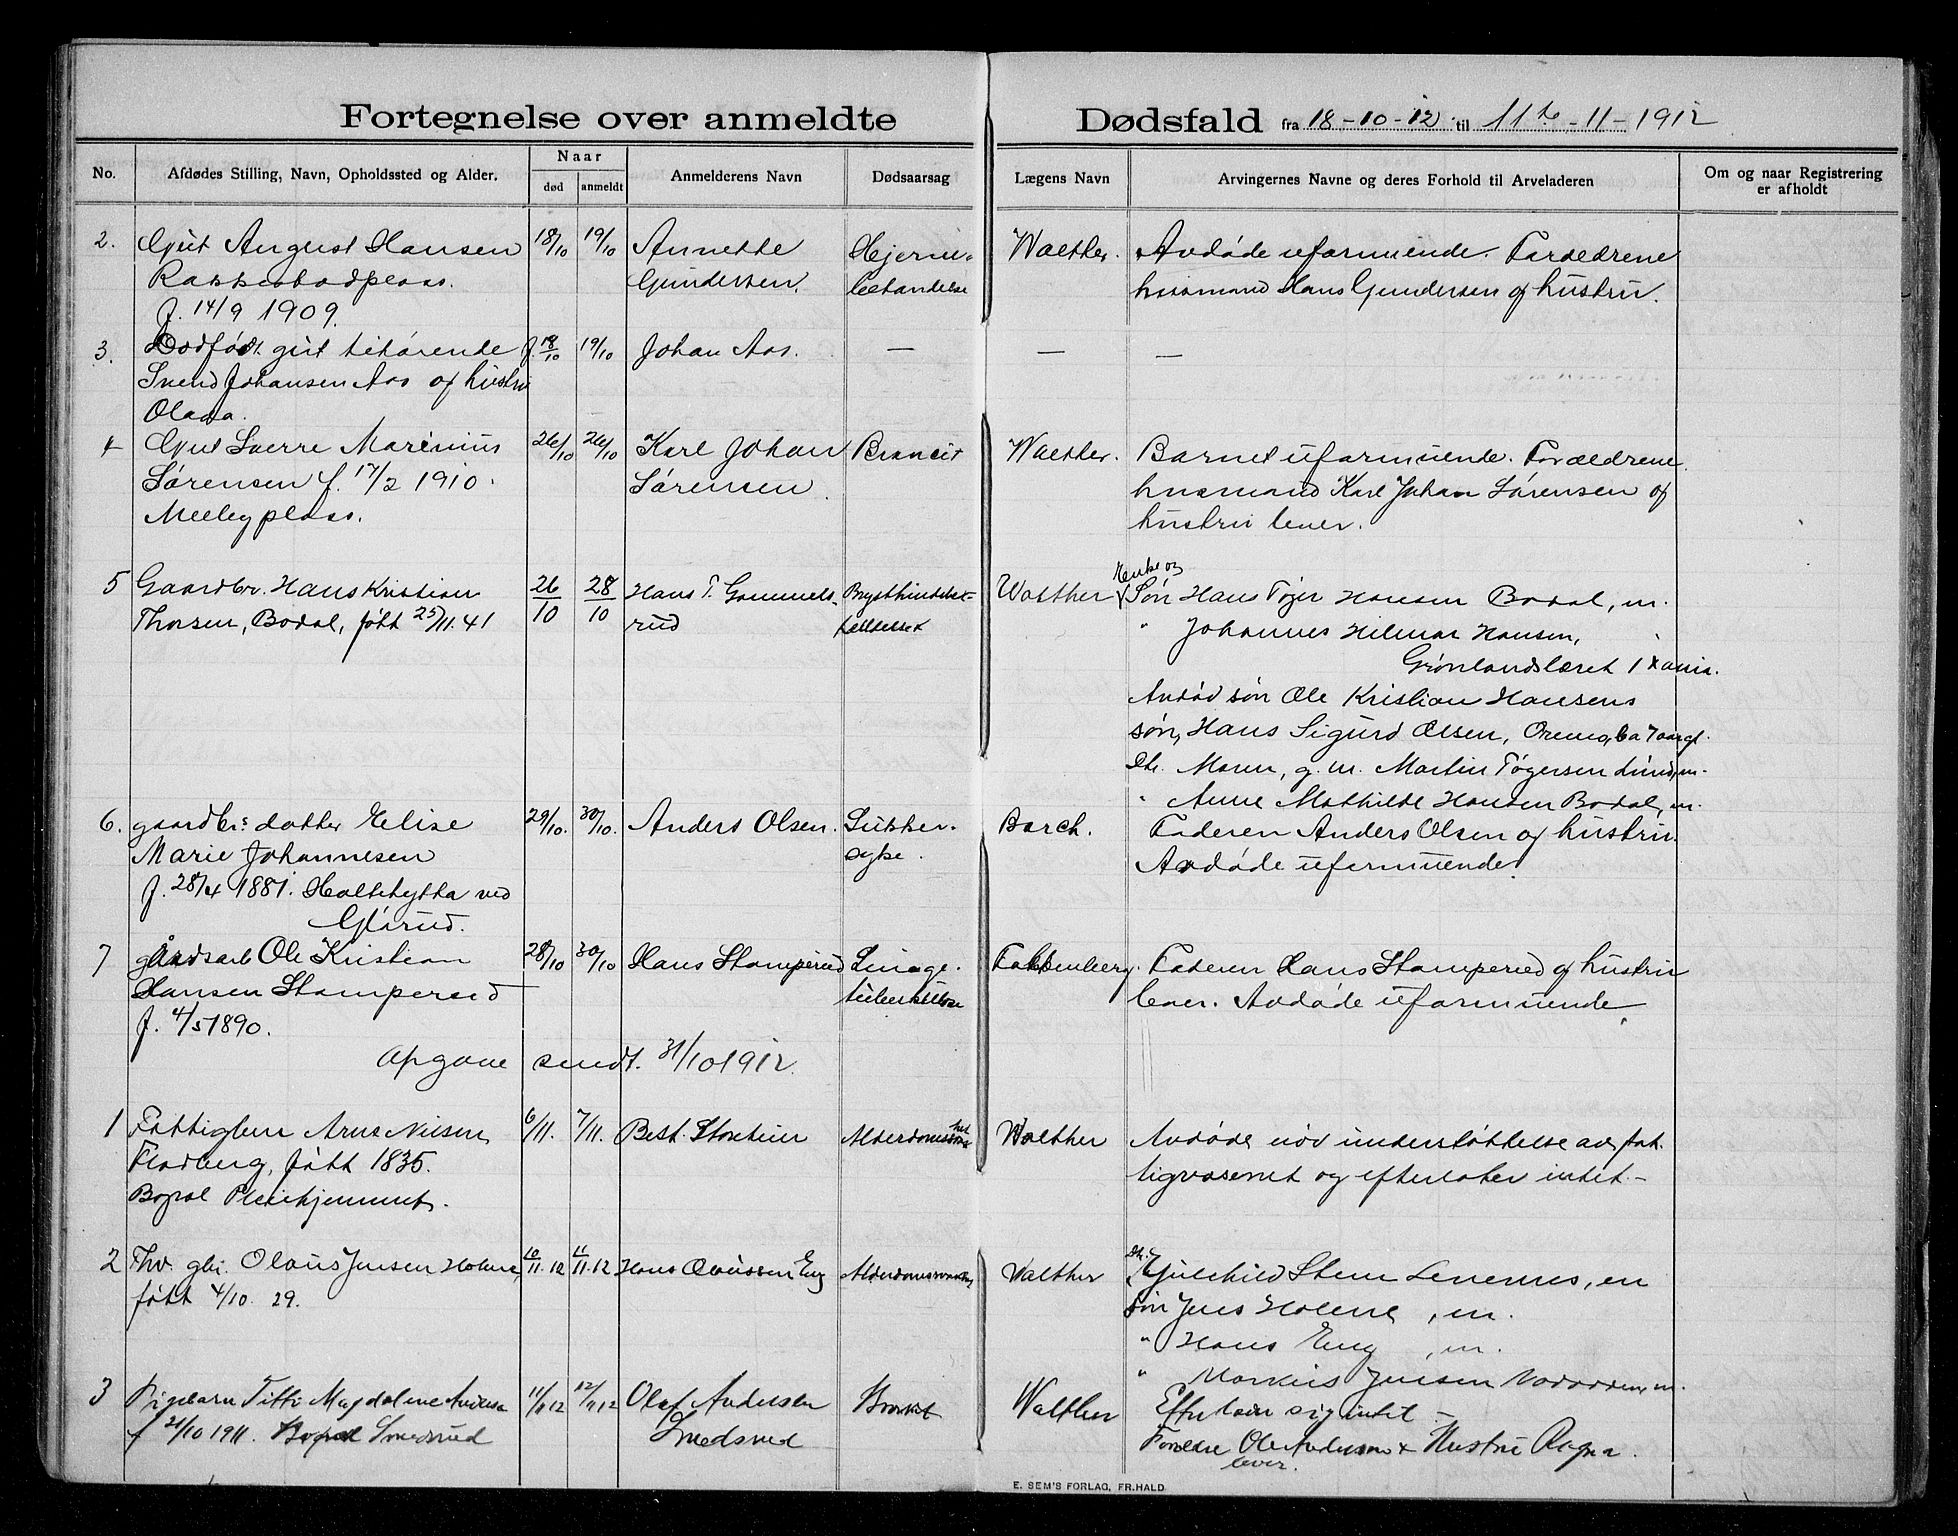 Fortegnelse over anmeldte Dødsfald fra 18-10-12 til 11te-11-1912
No. Afdødes Stilling, Navn, Opholdssted og Alder. Naar død anmeldt Anmelderens Navn Dødsaarsag Lægens Navn Arvingernes Navne og deres Forhold til Arveladeren Om og naar Registrering er afholdt
2. Gut August Hansen 18/10 19/10 Annette Hjerne- Walther. Avdøde uformuende. Forældrene
Gundersen. betændelse husmand Hans Gundersen og hustru.
f. 14/9 1909.
3. Dødfødt gut tilhørende f. 18/10 19/10 Johan Aas. — — —
Svend Johansen Aas og hustru
4 Gut Sverre Marinius 26/10 26/10 Karl Johan Broncit Walther. Barnet uformuende. Forældrene
Sørensen f. 17/2 1910. Sørensen. husmand Karl Johan Sørensen og
Meebyplass. hustru lever.
5 Gaardbr. Hans Kristian 26/10 28/10 Hans T. Gammels- Brysthindebe- Walther Enke og Søn Hans Tøger Hansen Bodal, m.
Thorsen, Bodal, født 25/11.41 rud tændelse " Johannes Hilmar Hansen,
Grønlandsleret 1 Xania.
Avdød søn Ole Kristian Hansens
søn, Hans Sigurd Olsen, ca 7 aar gl.
Dtr. Maren, g. m. Martin Tøgersen Lund, m.
" Anne Mathilde Hansen Bodal, m.
6. gaardbr. datter Elise 29/10. 30/10. Anders Olsen. Sukker- Borch. Faderen Anders Olsen og hustru.
Marie Johannesen syke. Avdøde uformuende.
f. 28/4 1881. Holtehytta ved
Glorud.
7 gaardsarb Ole Kristian 28/10 30/10 Hans Stamperud Lunge- Falkenberg. Faderen Hans Stamperud og hustru
Hansen Stamperud tuberkulose lever. Avdøde uformuende.
f. 4/5 1890.
Opgave sendt. 31/10 1912.
1 Fattiglem Arne Nilsen 6/11. 7/11. Best. Storeheier Alderdomssvakhet Walther Avdøde nøv understøttelse av fat-
Fladberg, født 1835. tigvæsenet og efterlater intet.-
Bopæl Pleiehjemmet.
2 Fhv. gbr. Olaus Jensen Holene, 10/11.12 11/11.12 Hans Olaussen Eng Alderdomssvakhet Walther Dtr. Gulehild Stene Lenernes, en
født 4/10. 29. Søn Jens Holene, m.
" Hans Eng, m.
" Markus Jensen m.
3 Pigebarn Titti Magdalene Andersen 11/11 12 12/11 12 Olaf Andersen Bronkit Walther Efterlader sig intet -
f 21/10 1911. Bopæl Smedsrud Smedsrud Forældre Ole Andersen & Hustru Ragna
lever.
E. SEM'S FORLAG, FR.HALD